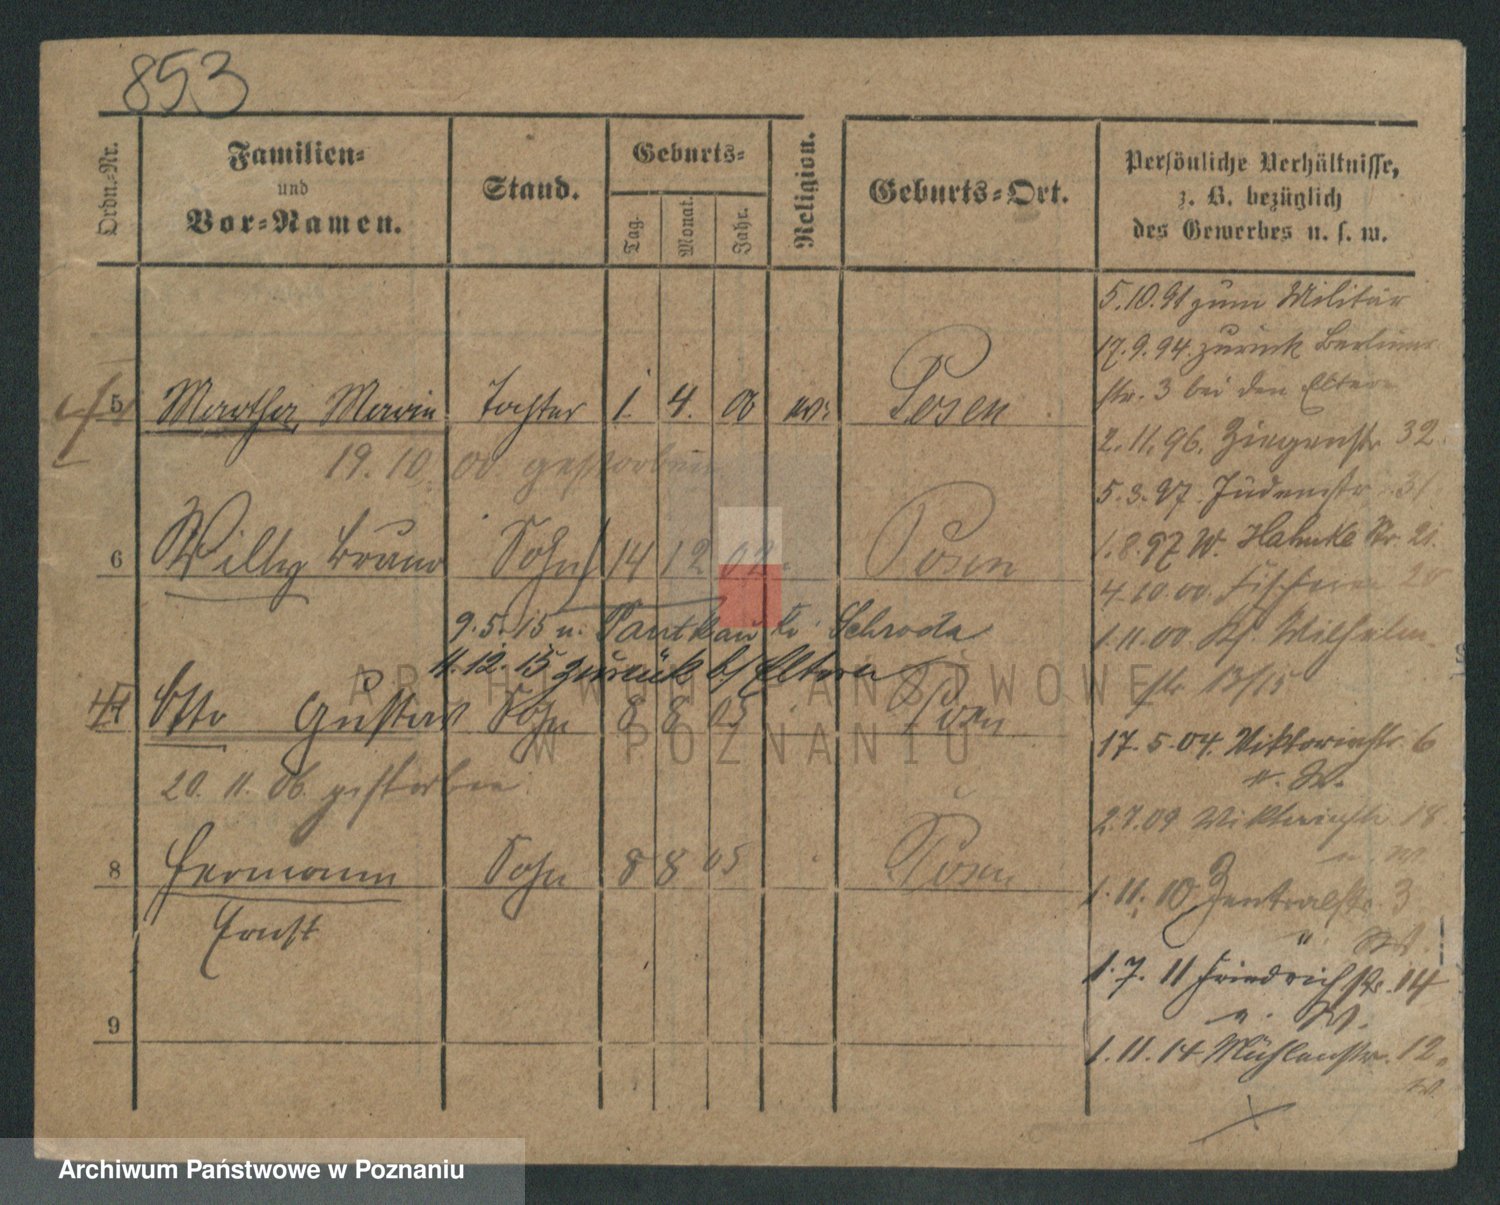 853
Ordn.-Nr.
Familien-
und
Vor-Namen.
Stand.
Geburts-
Tag.
Monat.
Jahr.
Religion.
Geburts-Ort.
Persönliche Verhältnisse,
z. B. bezüglich
des Gewerbes u. s. w.
5 Martha Marie Tochter 1. 4. 00 Posen
19. 10. 00 gestorben
6 Willy Bruno Sohn 14 12 02 Posen
9.5.15 n. Schroda
11.12.15 zurück b/ Eltern
Otto Gustav Sohn 8 8 05 Posen
20. 11. 06. gestorben
8 Hermann Sohn 8 8 05 Posen
Ernst
9
5.10.91 zum Militär
17.9.94. zurück Berliner-
str. 3 bei den Eltern
2.11.96. Ziegenstr 32
5.3.97. Judenstr. 31
1.8.97 W. Str. 21.
4.10.00. 28
1.11.00 Kf. Wilhelm-
str 13/15
17.5.04. Viktoriastr. 6
u. W.
2.7.09 Viktoriastr. 18.
u. W
1.11.10 Zentralstr. 3
u. W.
1.7.11 Friedrichstr. 14
u. W.
1.11.14 Mühlenstr. 12.
W.
ARCHIWUM PAŃSTWOWE
W POZNANIU
Archiwum Państwowe w Poznaniu